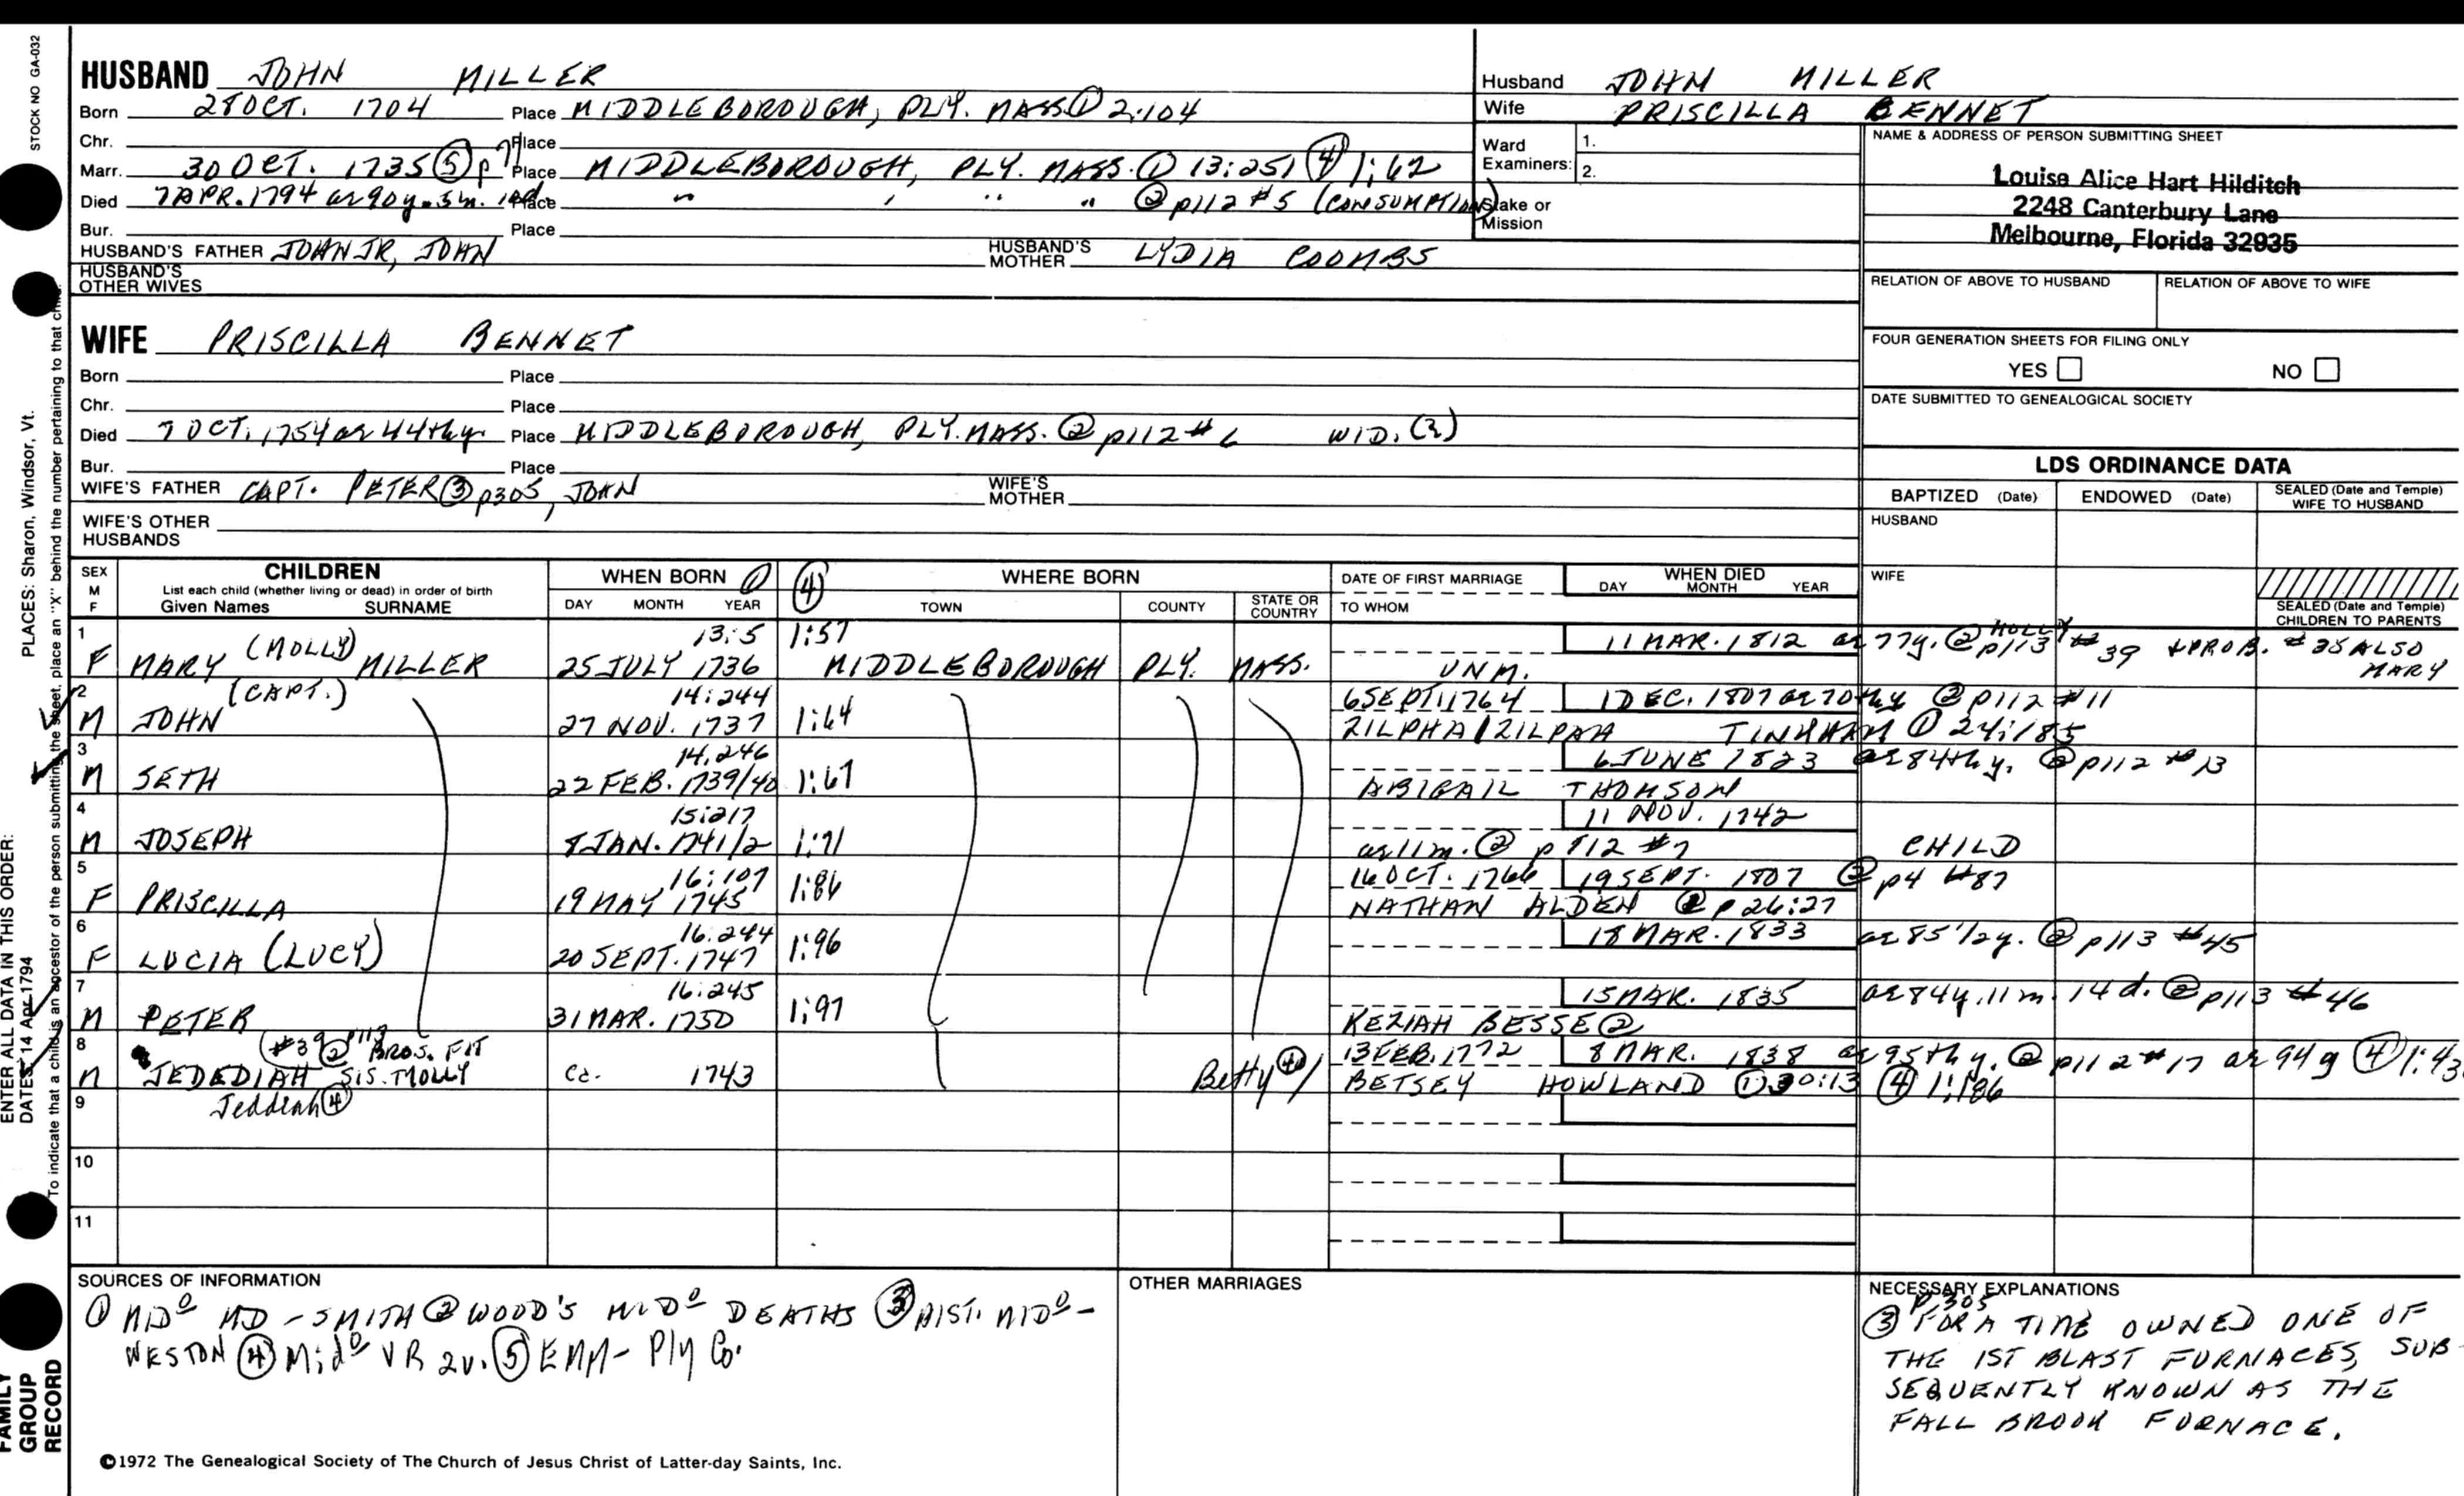 STOCK NO GA-032
HUSBAND JOHN MILLER
Born 28 OCT. 1704 Place MIDDLEBOROUGH, PLY. MASS ① 2:104
Chr. Place
Marr. 30 OCT. 1735 ⑤ p Place MIDDLEBOROUGH, PLY. MASS. ① 13:251 ④ 1:62
Died 7 APR. 1794 ae 90 y. 5 m. Place " , " " ② p112 #5 (CONSUMPTION)
Bur. Place
HUSBAND'S FATHER JOHN JR, JOHN HUSBAND'S MOTHER LYDIA COOMBS
HUSBAND'S OTHER WIVES
Husband JOHN MILLER
Wife PRISCILLA BENNET
Ward Examiners: 1.
2.
Stake or Mission
NAME & ADDRESS OF PERSON SUBMITTING SHEET
Louise Alice Hart Hilditch
2248 Canterbury Lane
Melbourne, Florida 32935
RELATION OF ABOVE TO HUSBAND RELATION OF ABOVE TO WIFE
FOUR GENERATION SHEETS FOR FILING ONLY
YES NO
DATE SUBMITTED TO GENEALOGICAL SOCIETY
WIFE PRISCILLA BENNET
Born Place
Chr. Place
Died 7 OCT. 1754 ae 44th y. Place MIDDLEBOROUGH, PLY. MASS. ② p112 #6 WID. (?)
Bur. Place
WIFE'S FATHER CAPT. PETER ③ p305, JOHN WIFE'S MOTHER
WIFE'S OTHER HUSBANDS
LDS ORDINANCE DATA
BAPTIZED (Date) ENDOWED (Date) SEALED (Date and Temple) WIFE TO HUSBAND
HUSBAND
WIFE
SEALED (Date and Temple) CHILDREN TO PARENTS
SEX M F CHILDREN
List each child (whether living or dead) in order of birth
Given Names SURNAME
WHEN BORN ① ④
DAY MONTH YEAR
WHERE BORN
TOWN COUNTY STATE OR COUNTRY
DATE OF FIRST MARRIAGE
TO WHOM
WHEN DIED
DAY MONTH YEAR
1 (MOLLY) 13:5 1:57 11 MAR. 1812 ae 77y. ② p113 MOLLY #39 & PROB. #35 ALSO MARY
F MARY MILLER 25 JULY 1736 MIDDLEBOROUGH PLY. MASS. UNM.
2 (CAPT.) 14:244 6 SEPT. 1764 1 DEC. 1807 ae 70th y ② p112 #11
M JOHN 27 NOV. 1737 1:64 ZILPHA/ZILPAH TINKHAM ① 24:185
3 14:246 6 JUNE 1823 ae 84th y. ② p112 #13
M SETH 22 FEB. 1739/40 1:67 ABIGAIL THOMSON
4 15:217 11 NOV. 1742
M JOSEPH 8 JAN. 1741/2 1:71 ae 11 m. ② p 112 #7 CHILD
5 16:107 1:86 16 OCT. 1766 19 SEPT. 1807 ② p4 #87
F PRISCILLA 19 MAY 1745 NATHAN ALDEN ② p 26:27
6 16:244 1:96 18 MAR. 1833 ae 85 1/2 y. ② p113 #45
F LUCIA (LUCY) 20 SEPT. 1747
7 16:245 1:97 15 MAR. 1835 ae 84 y. 11 m. 14 d. ② p113 #46
M PETER 31 MAR. 1750 KEZIAH BESSE ②
8 (#39 ② p113 BROS. FIT 13 FEB. 1772 8 MAR. 1838 ae 95th y. ② p112 #17 ae 94 y ④ 1:43
M JEDEDIAH SIS. MOLLY ca. 1743 Betty ④/ BETSEY HOWLAND ① 30:13 ④ 1:186
9 Jeddiah ④
10
11
SOURCES OF INFORMATION
① MIDº MD - SMITH ② WOOD'S MIDº DEATHS ③ HIST. MIDº -
WESTON ④ Midº VR 2v. ⑤ EMM - Ply Co.
OTHER MARRIAGES
NECESSARY EXPLANATIONS
p.305
③ FOR A TIME OWNED ONE OF
THE 1ST BLAST FURNACES, SUB-
SEQUENTLY KNOWN AS THE
FALL BROOK FURNACE.
©1972 The Genealogical Society of The Church of Jesus Christ of Latter-day Saints, Inc.
FAMILY
GROUP
RECORD
ENTER ALL DATA IN THIS ORDER:
DATES: 14 Apr 1794
PLACES: Sharon, Windsor, Vt.
To indicate that a child is an ancestor of the person submitting the sheet, place an "X" behind the number pertaining to that child.